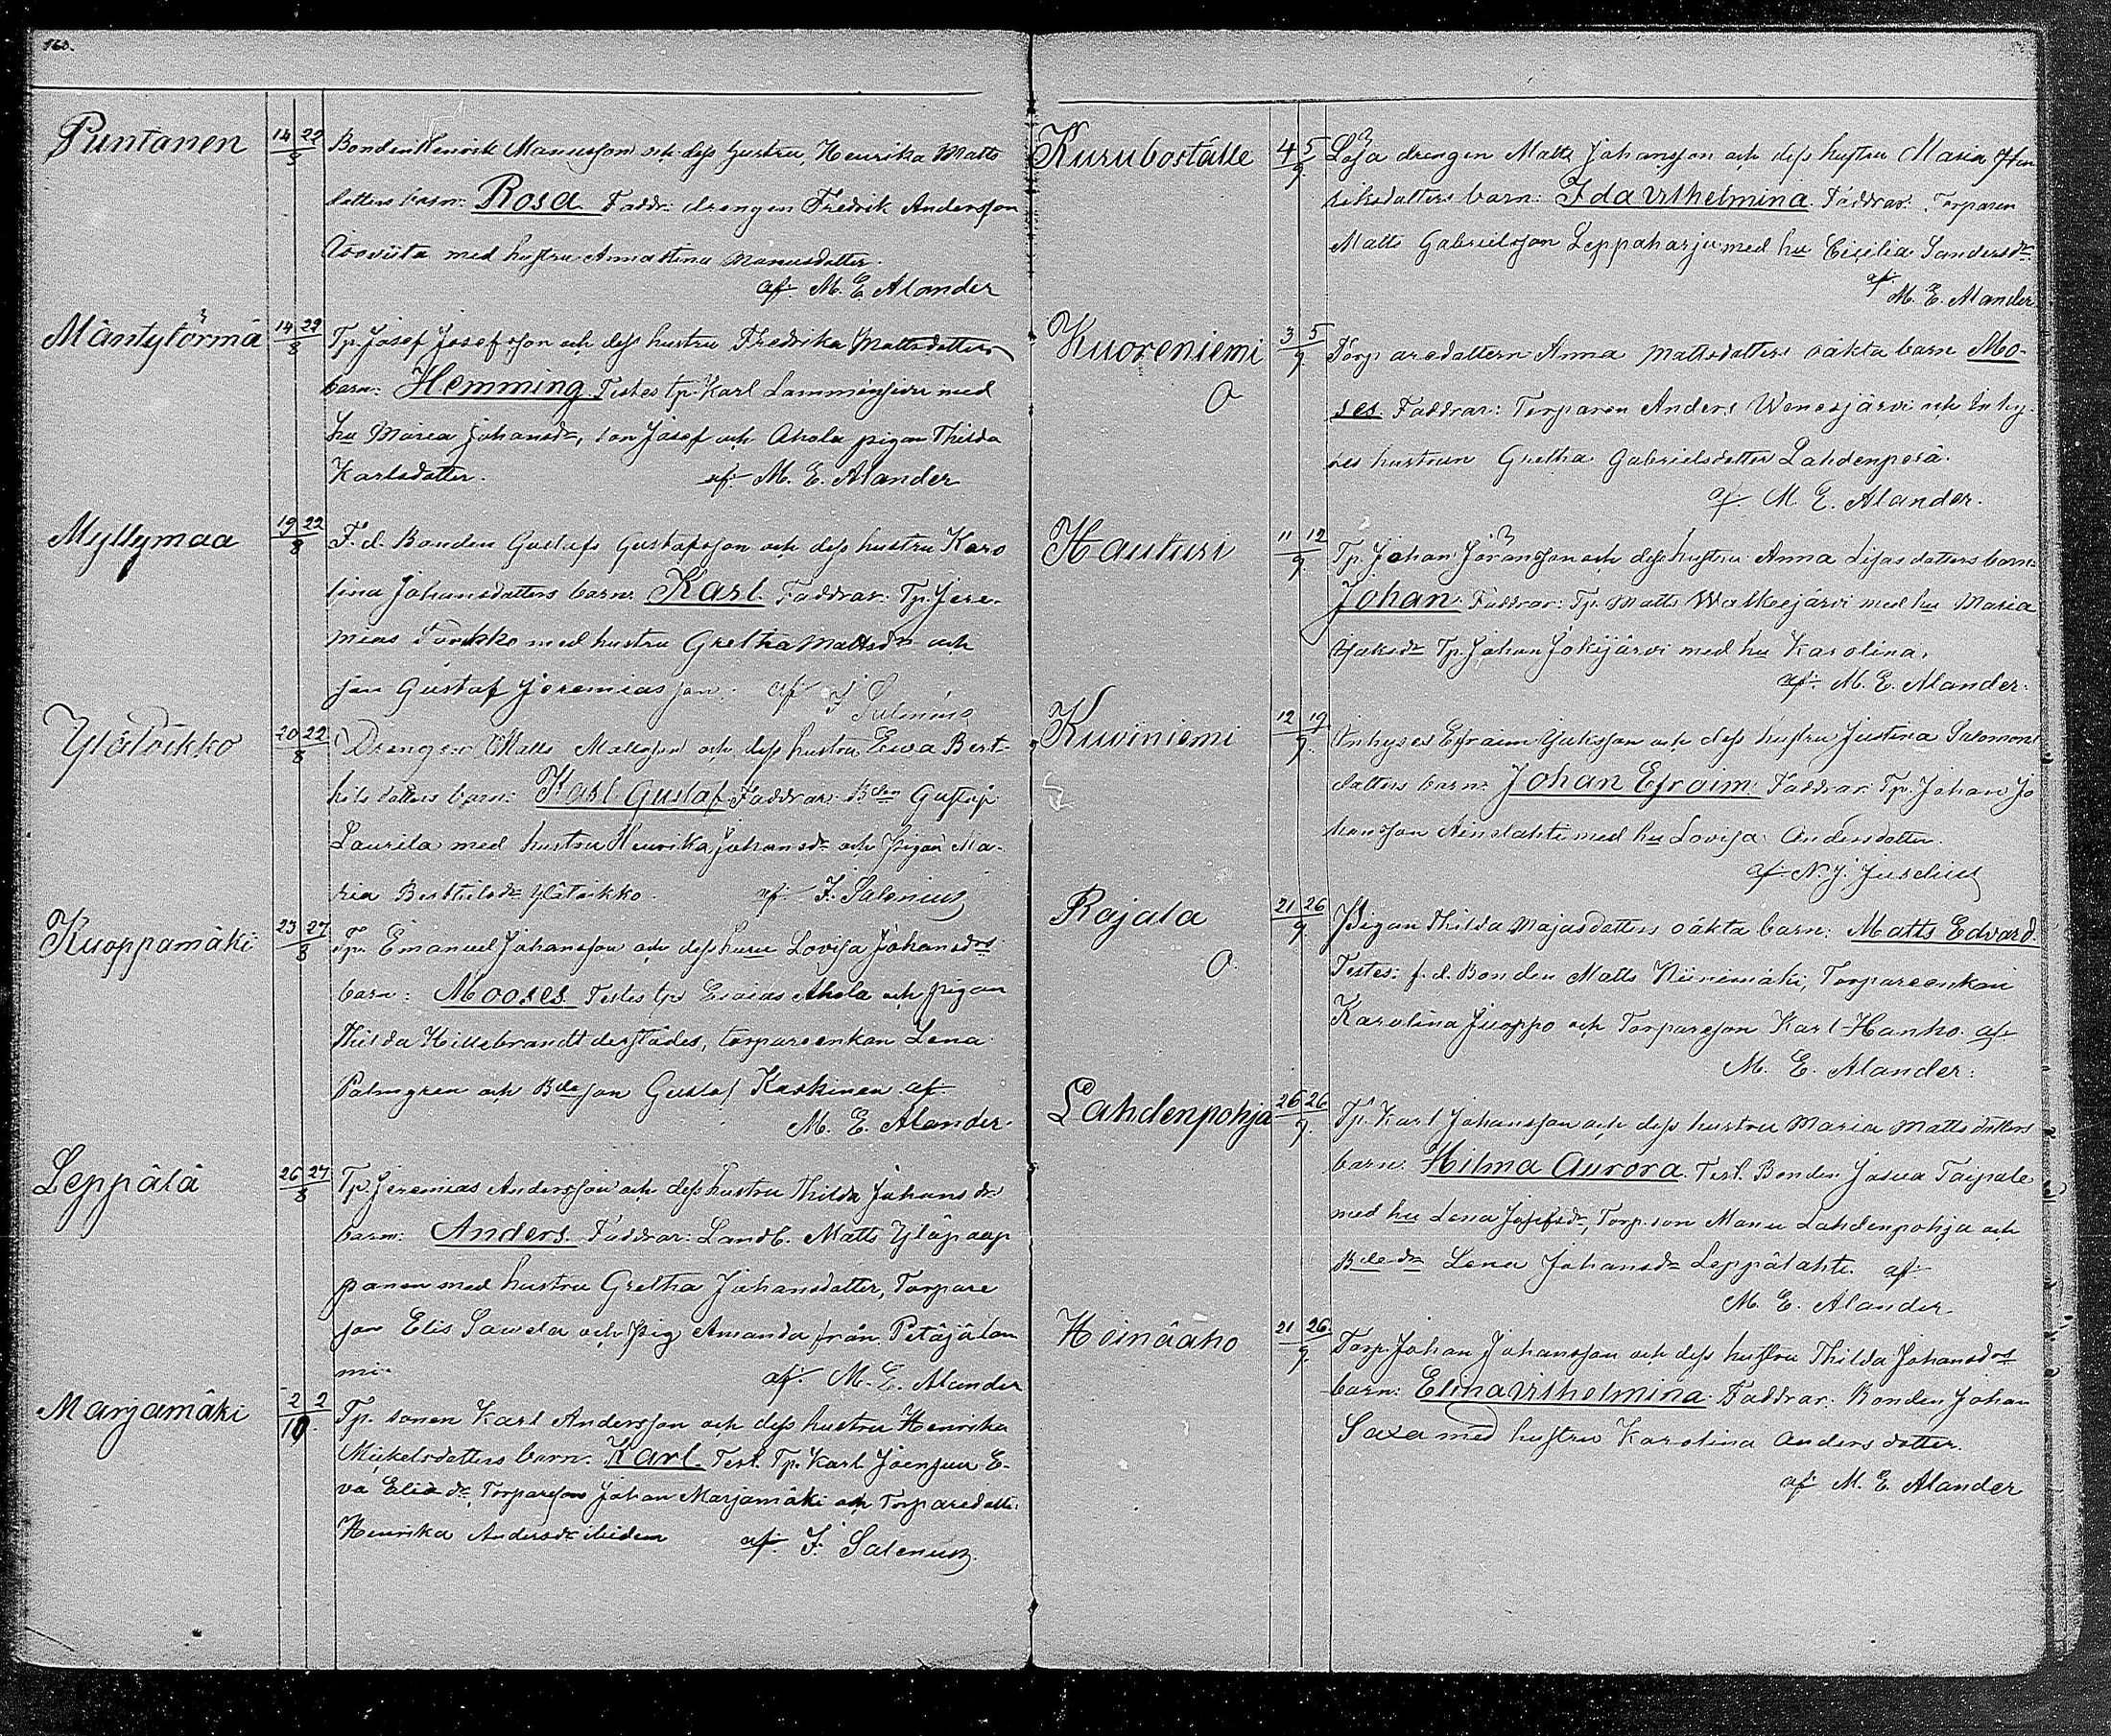 163.
Puntanen 14 22/8 Bonden Henrik Manusson och dess hustru Henrika Matts
dotters barn: Rosa. Faddr: drengen Fredrik Andersson
med hustru Anna Stina Manusdotter.
af. M. E. Alander
Mäntytörmä 14 22/8 Tp. Josef Josefsson och dess hustru Fredrika Mattsdotters
barn: Hemming. Testes tp. Karl Lamminsivu med
hu Maria Johansdr, son Josef och Ahola pigan Thilda
Karlsdotter. af. M. E. Alander
Myllymaa 19 22/8 F. d. Bonden Gustafs Gustafsson och dess hustru Karo
lina Johansdotters barn: Karl. Faddrar: Tp. Jere-
mias med hustru Gretha Mattsdr och
son Gustaf Jeremiasson. af J Salenius
Ylätöikkö 20 22/8 Drengen Matts Mattsson och dess hustru Ewa Bert-
hilsdotters barn: Karl Gustaf. Faddrar: Bden Gustaf
Laurila med hustru Henrika Johansdr och Pigan Ma-
ria Berthilsdr Ylätöikkö. af J. Salenius
Kuoppamäki 23 27/8 Tp. Emanuel Johansson och dess huru Lovisa Johansdrs
barn: Mooses. Testes tp. Esaias Ahola och pigan
Thilda Hillebrandt derstädes, torpareenkan Lena
Palmgren och Bdeson Gustaf Koskinen af.
M. E. Alander.
Leppälä 26 27/8 Tp. Jeremias Andersson och dess hustru Thilda Johansdr
barn: Anders. Faddrar: Landb. Matts Yläpaap
panen med hustru Gretha Johansdotter, Torpare
son Elis Sawela och Pig Amanda från Petäjälam
mi. af. M. E. Alander
Marjamäki 2 2/10. Tp. sonen Karl Andersson och dess hustru Henrika
Mickelsdotters barn: Karl. Test. Tp. Karl Joensuu E-
va Eliedr, Torpareson Johan Marjamäki och Torparedottr.
Henrika Andersdr ibidem af. J. Salenius.
Kuruboställe 4 5/9. drengen Matts Johansson och dess hustru Maria Hen
riksdotters barn: Ida Vilhelmina. Faddrar: Torparen
Matts Gabrielsson Leppäharju med hu Cicilia Sandersdr.
af M. E. Alander
Kuoreniemi 3 5/9. Torparedottern Anna Mattsdotters oäkta barn Mo-
O
ses. Faddrar: Torparen Anders Wenesjärvi och Inhy-
ses hustrun Gretha Gabrielsdotter Lahdenperä.
af. M. E. Alander.
Hautusi 11 12/9. Tp. Johan Göransson och dess hustru Anna Lisasdotters barn:
Johan. Faddrar: Tp. Matts Walkejärvi med hu Maria
Jaksdr Tp. Johan Jokijärvi med hu Karolina.
af. M. E. Alander.
Kuviniemi 12 19/9. Inhyses Efraim Jaksson och dess hustru Justina Salomons
dotters barn: Johan Efraim. Faddrar: Tp. Johan Jo
hansson med hu Lovisa Andersdotter.
af N. J. Juselius
Rajala 21 26/9. Pigan Thilda Majasdotters oäkta barn: Matts Edvard.
O.
Testes: f. d. Bonden Matts Niinimäki, Torpareenkan
Karolina Juoppo och Torpareson Karl Hanho. af
M. E. Alander.
Lahdenpohja 26 26/9. Tp. Karl Johansson och dess hustru Maria Mattsdotters
barn: Hilma Aurora. Test. Bonden Josua Taipale
med hu Lena Josefsdr, Torp. son Manu Lahdenpohja och
Bdedr Lena Johansdr Leppälahti. af.
M. E. Alander.
Heinäaho 21 26/9. Torp. Johan Johansson och dess hustru Thilda Johansdrs
barn: Elina Vilhelmina. Faddrar: Bonden Johan
Saxa med hustru Karolina Andersdotter.
af M. E. Alander